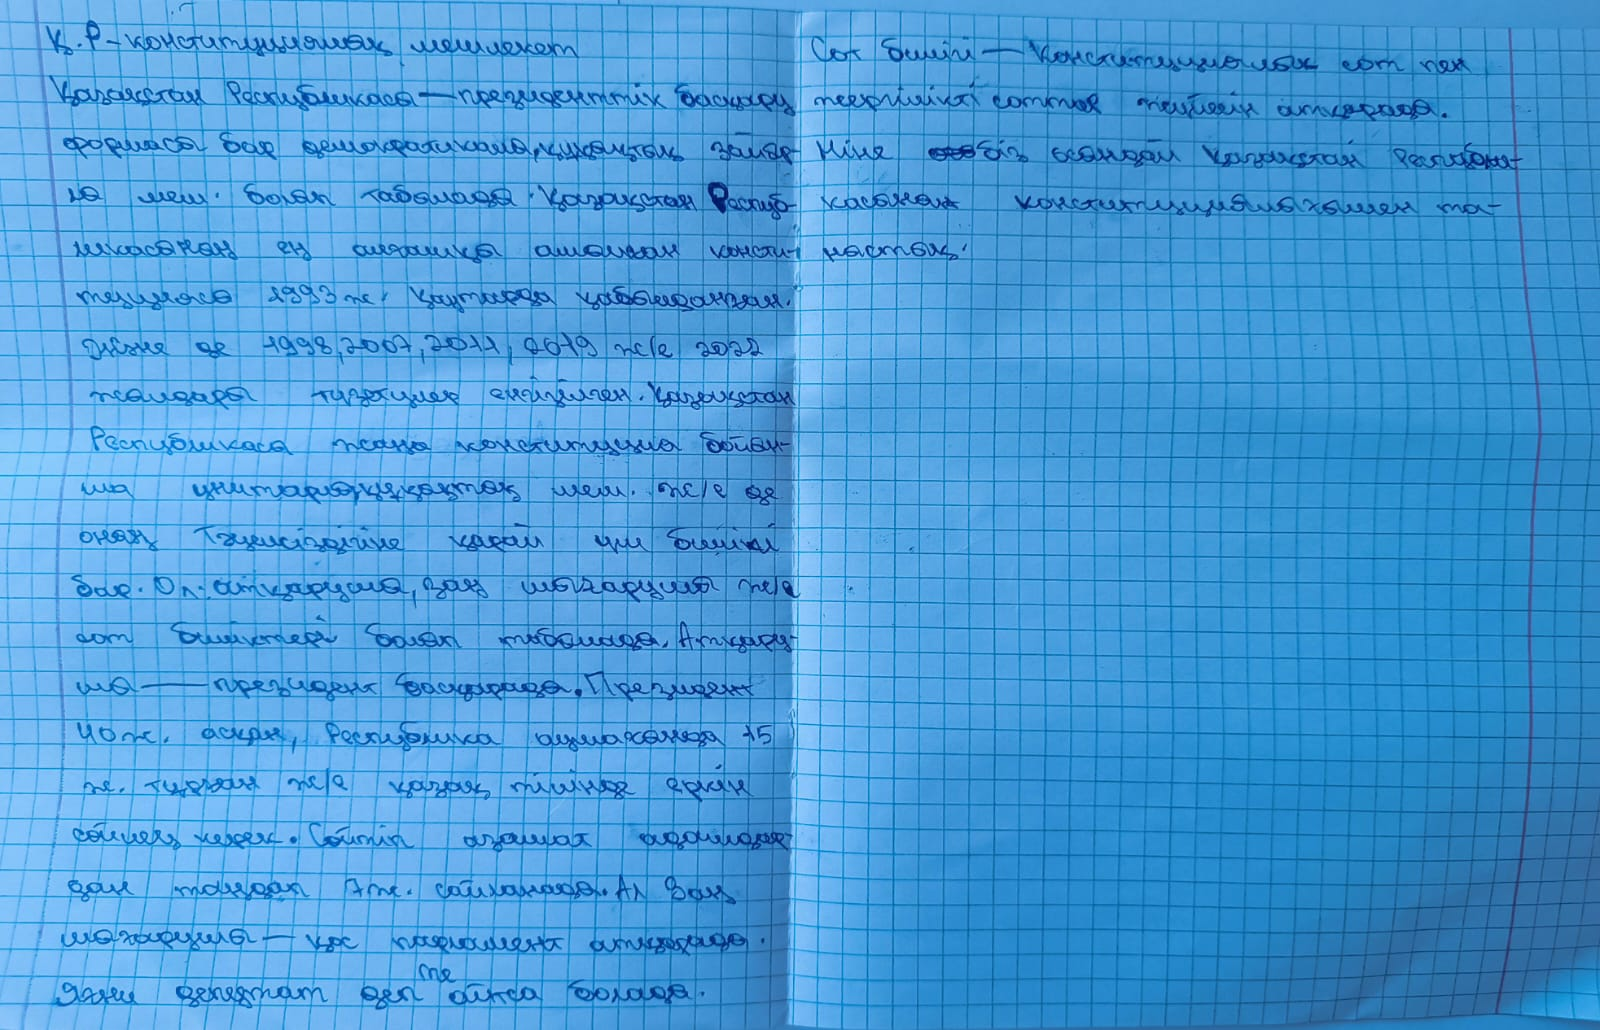 Қ.Р – конституциялық мемлекет
Қазақстан Республикасы — президенттік басқару
формасы бар демократиялық, құқықтық зайыр-
лы мем. болып табылады. Қазақстан Респуб-
ликасының ең алғашқы алынған консти-
туциясы 1993 ж. қаңтарда қабылданған.
Және де 1998, 2007, 2011, 2019 ж/е 2022
жылдары түзетулер енгізілген. Қазақстан
Республикасы жаңа конституция бойын-
ша унитарлы, құқықтық мем. ж/е де
оның тәуелсіздігіне қарай үш билігі
бар. Ол: атқарушы, заң шығарушы ж/е
сот биліктері болып табылады. Атқару-
шы — президент басқарады. Президент
40 ж. асқан, Республика аумағында 15
ж. тұрған ж/е қазақ тілінде еркін
сөйлеу керек. Сөйтіп азамат адамдар-
дан таңдап 7 ж. сайланады. Ал Заң
шығарушы — қос парламент атқарады.
Яғни депутат деп те айтса болады.
Сот билігі — Конституциялық сот пен
жергілікті соттар тиісін атқарады.
Міне біз осындай Қазақстан Республи-
касының конституциясымен та-
ныстық.